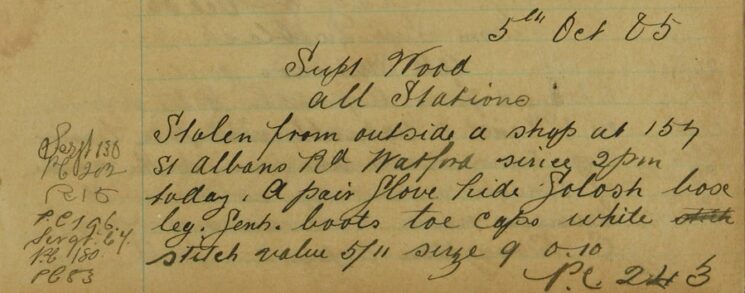 5th Oct 85
Supt Wood
all Stations
Stolen from outside a shop at 157
St Albans Rd Watford since 2pm
today. A pair Glove hide Golosh bose
leg. Gent. boots toe caps white stitch
stitch value 5/11 serze 9 0.10
P.C. 243
Sergt 130
PC 202
R 15
P.C 196.
Sergt. 64.
P.C 180
PC 83